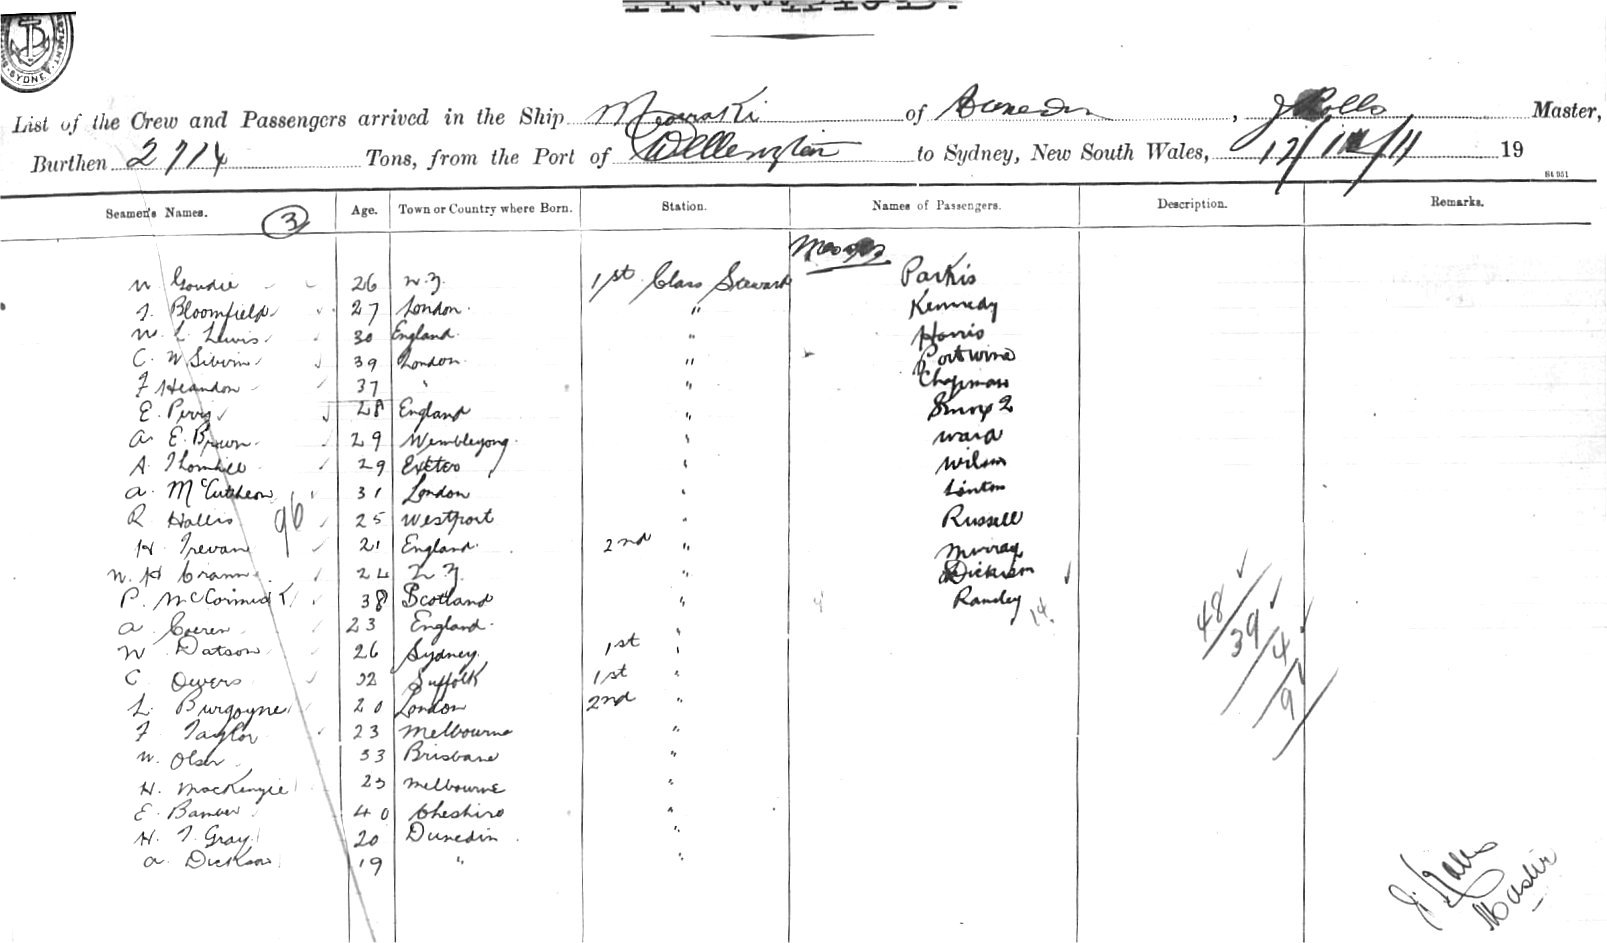 SYDNEY
List of the Crew and Passengers arrived in the Ship of Dunedin, J Rolls Master,
Burthen 2714 Tons, from the Port of Wellington to Sydney, New South Wales, 12/ /11 19
St 951
Seamen's Names. 3 Age. Town or Country where Born. Station. Names of Passengers. Description. Remarks.
W Goudie 26 N.Z. 1st Class Steward Parkis
J. Bloomfield 27 London " Kennedy
W. L. Lewis 30 England " Harris
C. W 39 London " Portwine
F Headon 37 " " Chapman
E. Perry 28 England " 2
A. E. Brown 29 " Ward
A. Thornhill 29 Exeter " Wilson
A. McCutcheon 31 London " Linton
R 96 25 Westport " Russell
H. Trevan 21 England 2nd " Murray
W. H 24 N.Z. " Dickson
P. McCormick 38 Scotland " 4 14
A. 23 England "
W Watson 26 Sydney 1st "
C Owers 32 Suffolk 1st "
L. Burgoyne 20 London 2nd "
F. Taylor 23 Melbourne "
W. Olsen 33 Brisbane "
H. MacKenzie 23 Melbourne "
E. 40 Cheshire "
H. J. Gray 20 Dunedin "
A. Dickson 19 " "
48
39
4
91
J. Rolls
Master